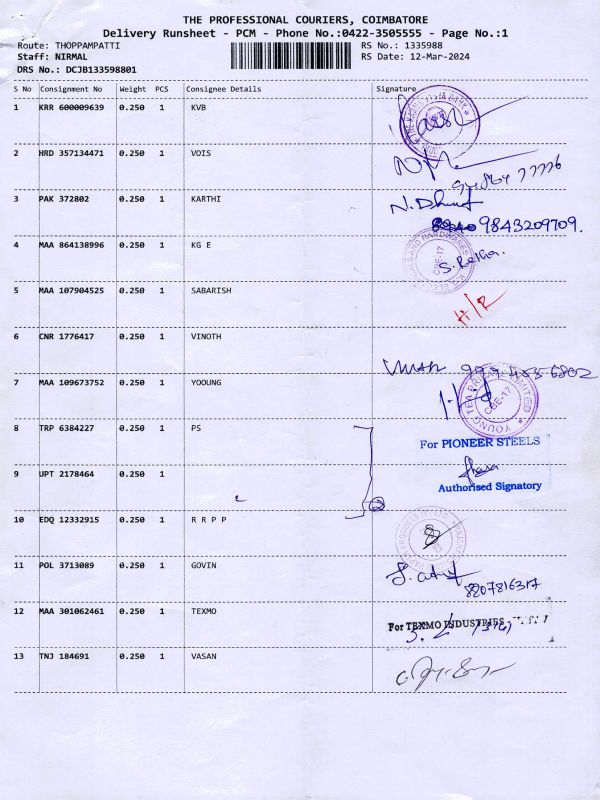 THE PROFESSIONAL COURIERS, COIMBATORE
Delivery Runsheet - PCM - Phone No.:0422-3505555 - Page No.:1
Route: THOPPAMPATTI RS No.: 1335988
Staff: NIRMAL RS Date: 12-Mar-2024
DRS No.: DCJB133598801
S No Consignment No Weight PCS Consignee Details Signature
1 KRR 600009639 0.250 1 KVB
2 HRD 357134471 0.250 1 VOIS
3 PAK 372802 0.250 1 KARTHI N.Dhu
9843209709.
4 MAA 864138996 0.250 1 KG E
CBE-17
S. Rekha.
5 MAA 107904525 0.250 1 SABARISH H/R
6 CNR 1776417 0.250 1 VINOTH
7 MAA 109673752 0.250 1 YOOUNG
YOUNG TEX PRIVATE LIMITED
CBE-17
8 TRP 6384227 0.250 1 PS
For PIONEER STEELS
9 UPT 2178464 0.250 1
Authorised Signatory
2
10 EDQ 12332915 0.250 1 R R P P
11 POL 3713089 0.250 1 GOVIN
8207816317
12 MAA 301062461 0.250 1 TEXMO
For TEXMO INDUSTRIES
13 TNJ 184691 0.250 1 VASAN